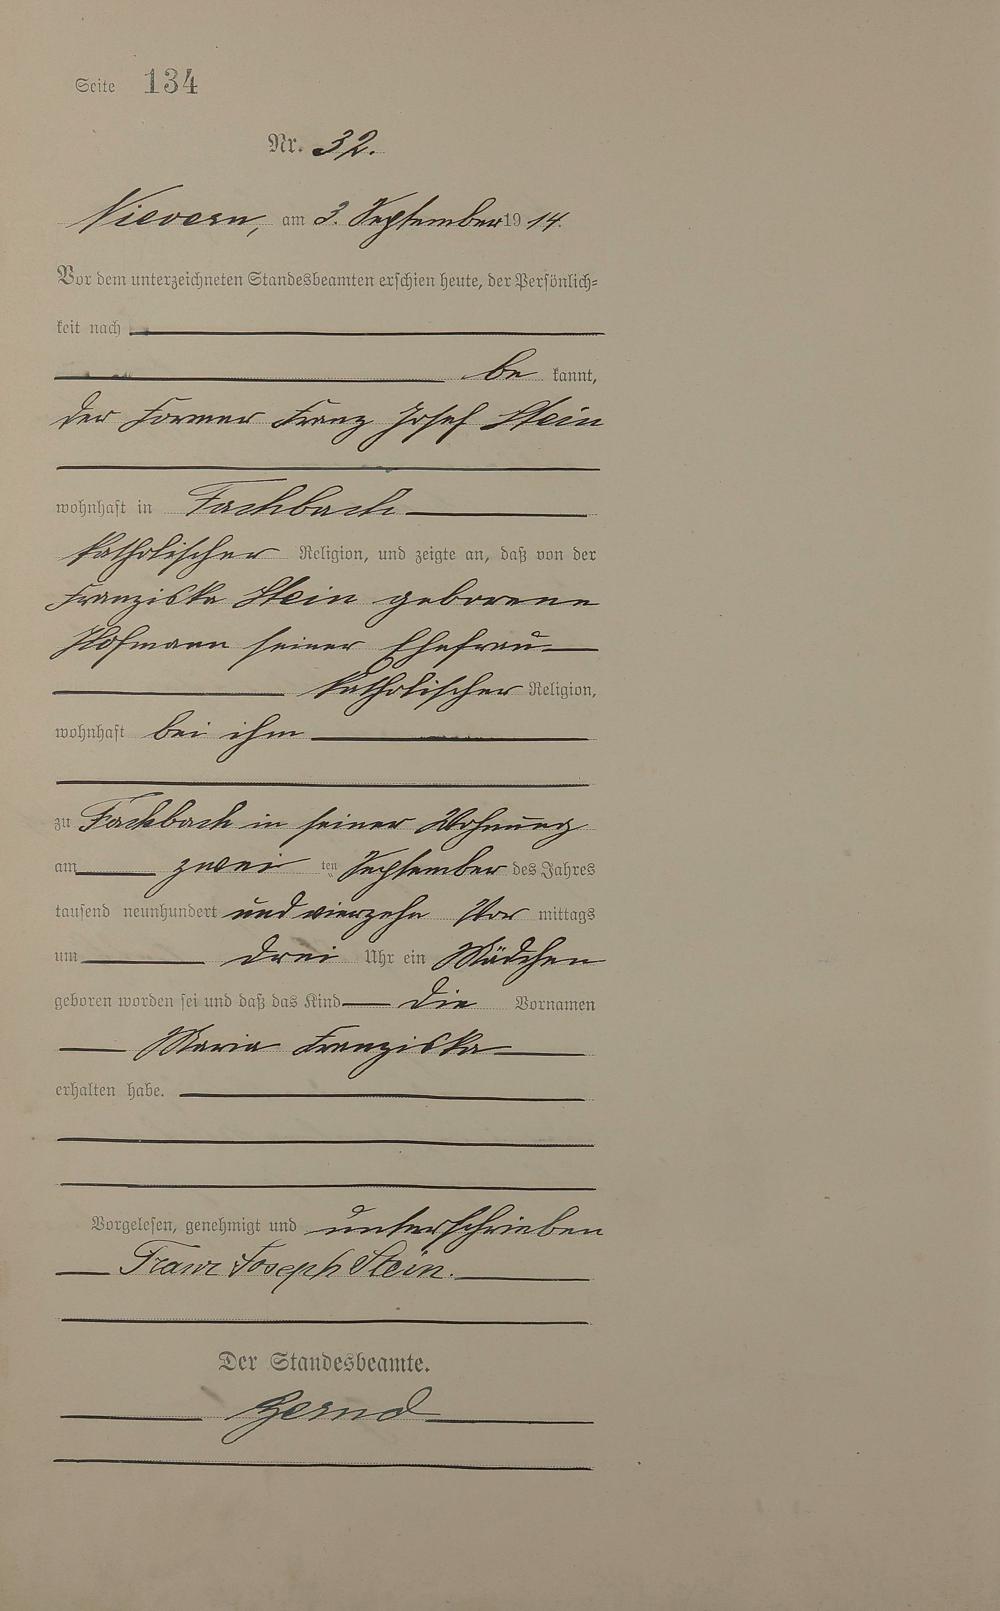 Seite 134
Nr. 32.
Nievern, am 3. September 1914.
Vor dem unterzeichneten Standesbeamten erschien heute, der Persönlich=
keit nach
be kannt,
der Former Franz Josef Stein
wohnhaft in Fachbach
katholischer Religion, und zeigte an, daß von der
Franziska Stein geborene
Hofmann seiner Ehefrau
katholischer Religion,
wohnhaft bei ihm
zu Fachbach in seiner Wohnung
am zwei ten September des Jahres
tausend neunhundert und vierzehn Vor mittags
um drei Uhr ein Mädchen
geboren worden sei und daß das Kind die Vornamen
Maria Franziska
erhalten habe.
Vorgelesen, genehmigt und unterschrieben
Franz Joseph Stein.
Der Standesbeamte.
Gernd